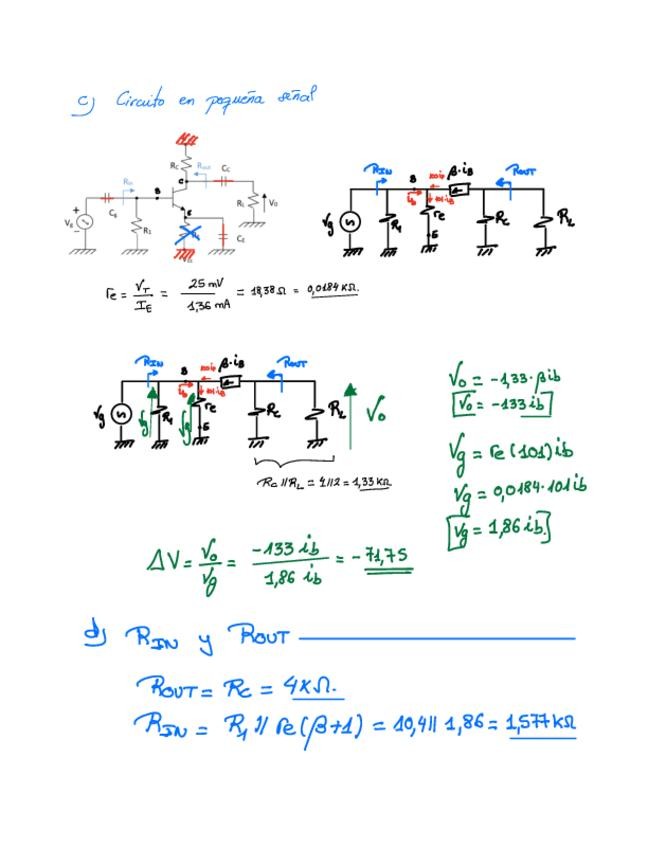 c) Circuito en pequeña señal
RC Rout CC
C
Rin
B
E
CE
Vg
R1
RL
Vo
CE
RIN B β·iB ROUT
ib
Vg R1 re RC RL
E
re = VT / IE = 25 mV / 1,36 mA = 18,38 Ω = 0,0184 KΩ.
RIN B β·iB ROUT
ib
Vg Vg R1 Vg re RC RL Vo
E
RC // RL = 4//2 = 1,33 KΩ
Vo = -1,33 · βib
Vo = -133 ib
Vg = re (101) ib
Vg = 0,0184 · 101 ib
Vg = 1,86 ib.
ΔV = Vo / Vg = -133 ib / 1,86 ib = -71,75
d) RIN y ROUT
ROUT = RC = 4KΩ.
RIN = R1 // re(β+1) = 10,4 // 1,86 = 1,577 KΩ